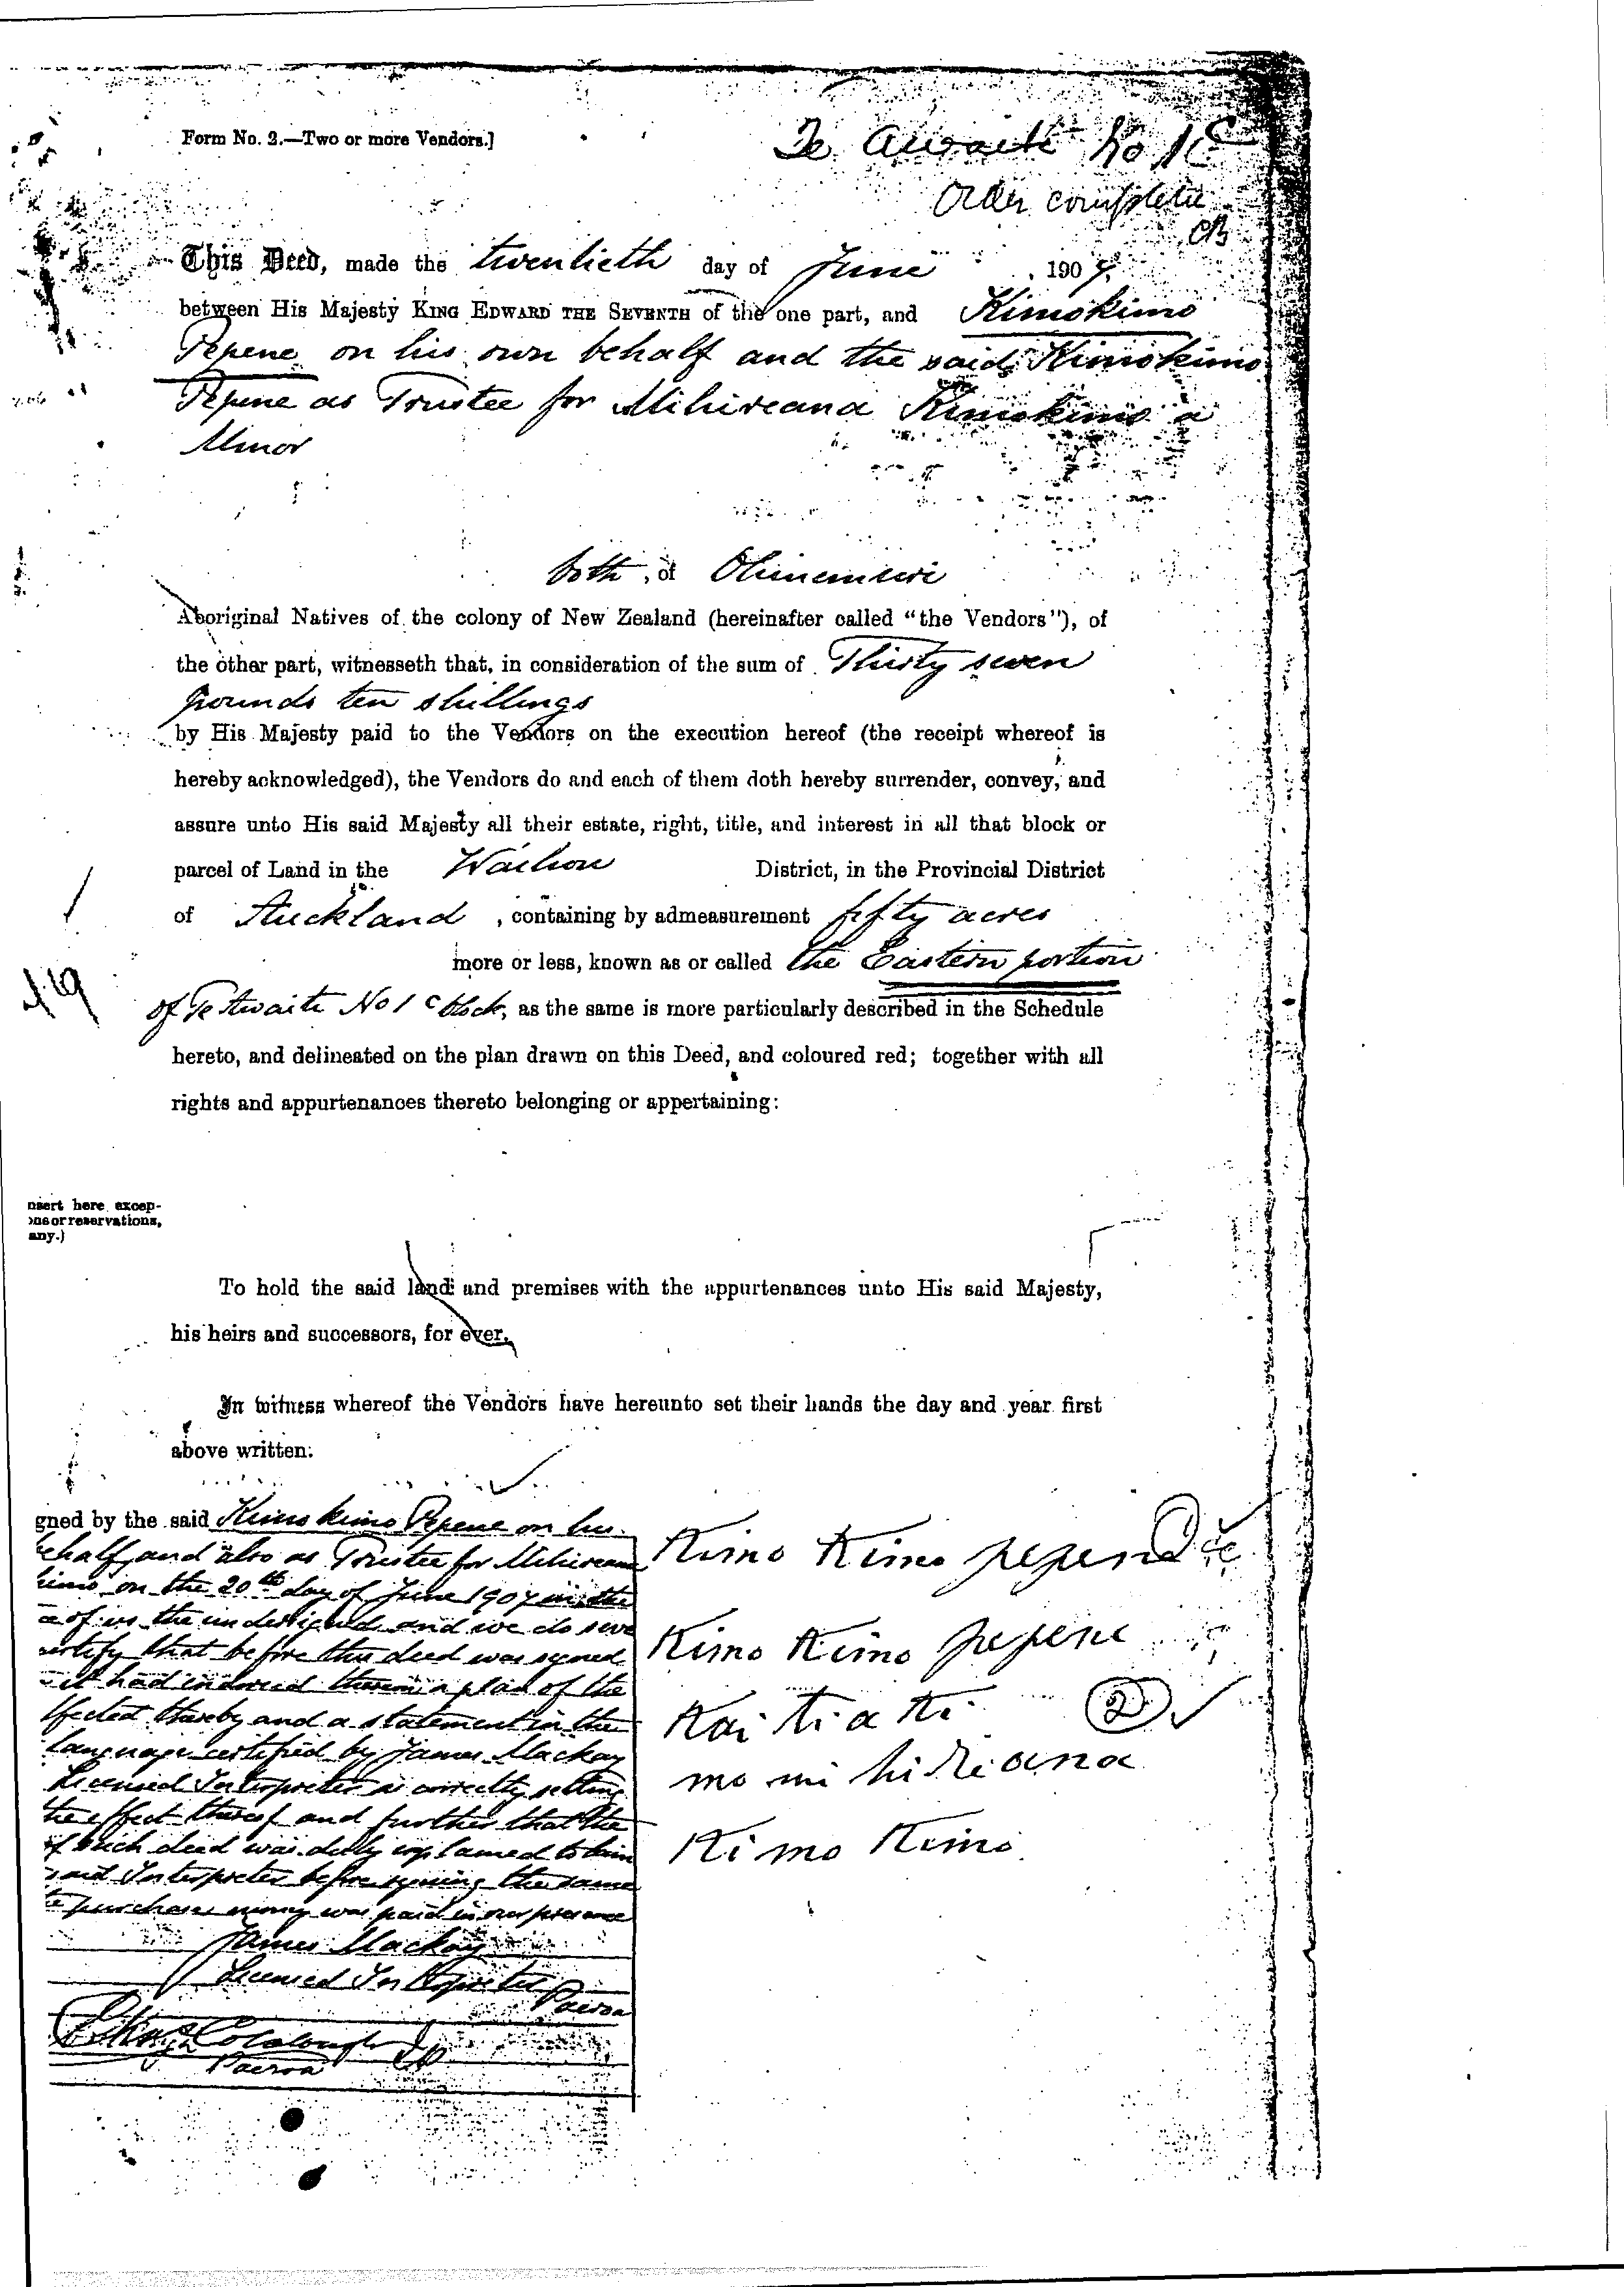 Form No. 2.—Two or more Vendors.]
Te Awaiti No 1C
Order complete
This Deed, made the twentieth day of June 1907
between His Majesty KING EDWARD THE SEVENTH of the one part, and Kimokimo
Pepene on his own behalf and the said Kimokimo
Pepene as Trustee for Mihireana Kimokimo a
Minor
both of Ohinemuri
Aboriginal Natives of the colony of New Zealand (hereinafter called "the Vendors"), of
the other part, witnesseth that, in consideration of the sum of Thirty seven
pounds ten shillings
by His Majesty paid to the Vendors on the execution hereof (the receipt whereof is
hereby acknowledged), the Vendors do and each of them doth hereby surrender, convey, and
assure unto His said Majesty all their estate, right, title, and interest in all that block or
parcel of Land in the Waihou District, in the Provincial District
of Auckland, containing by admeasurement fifty acres
more or less, known as or called the Eastern portion
of Te Awaiti No 1 C block, as the same is more particularly described in the Schedule
hereto, and delineated on the plan drawn on this Deed, and coloured red; together with all
rights and appurtenances thereto belonging or appertaining:
nsert here excep-
ons or reservations,
any.)
To hold the said land and premises with the appurtenances unto His said Majesty,
his heirs and successors, for ever.
In witness whereof the Vendors have hereunto set their hands the day and year first
above written.
gned by the said Kimokimo Pepene on his
behalf and also as Trustee for Mihireana
kimo on the 20th day of June 1907 in the
of us the undersigned and we do seve
certify that before this deed was signed
it had indorsed thereon a plan of the
ffected thereby and a statement in the
language certified by James Mackay
Licensed Interpreter as correctly setting
the effect thereof and further that the
of such deed was duly explained to him
said Interpreter before signing the same
purchase money was paid in our presence
James Mackay
Licensed Interpreter
Paeroa
Paeroa
Kimo Kimo pepene
Kimo Kimo pepene
Kai tia ki
mo mi hi ri ana
Ki mo Kimo